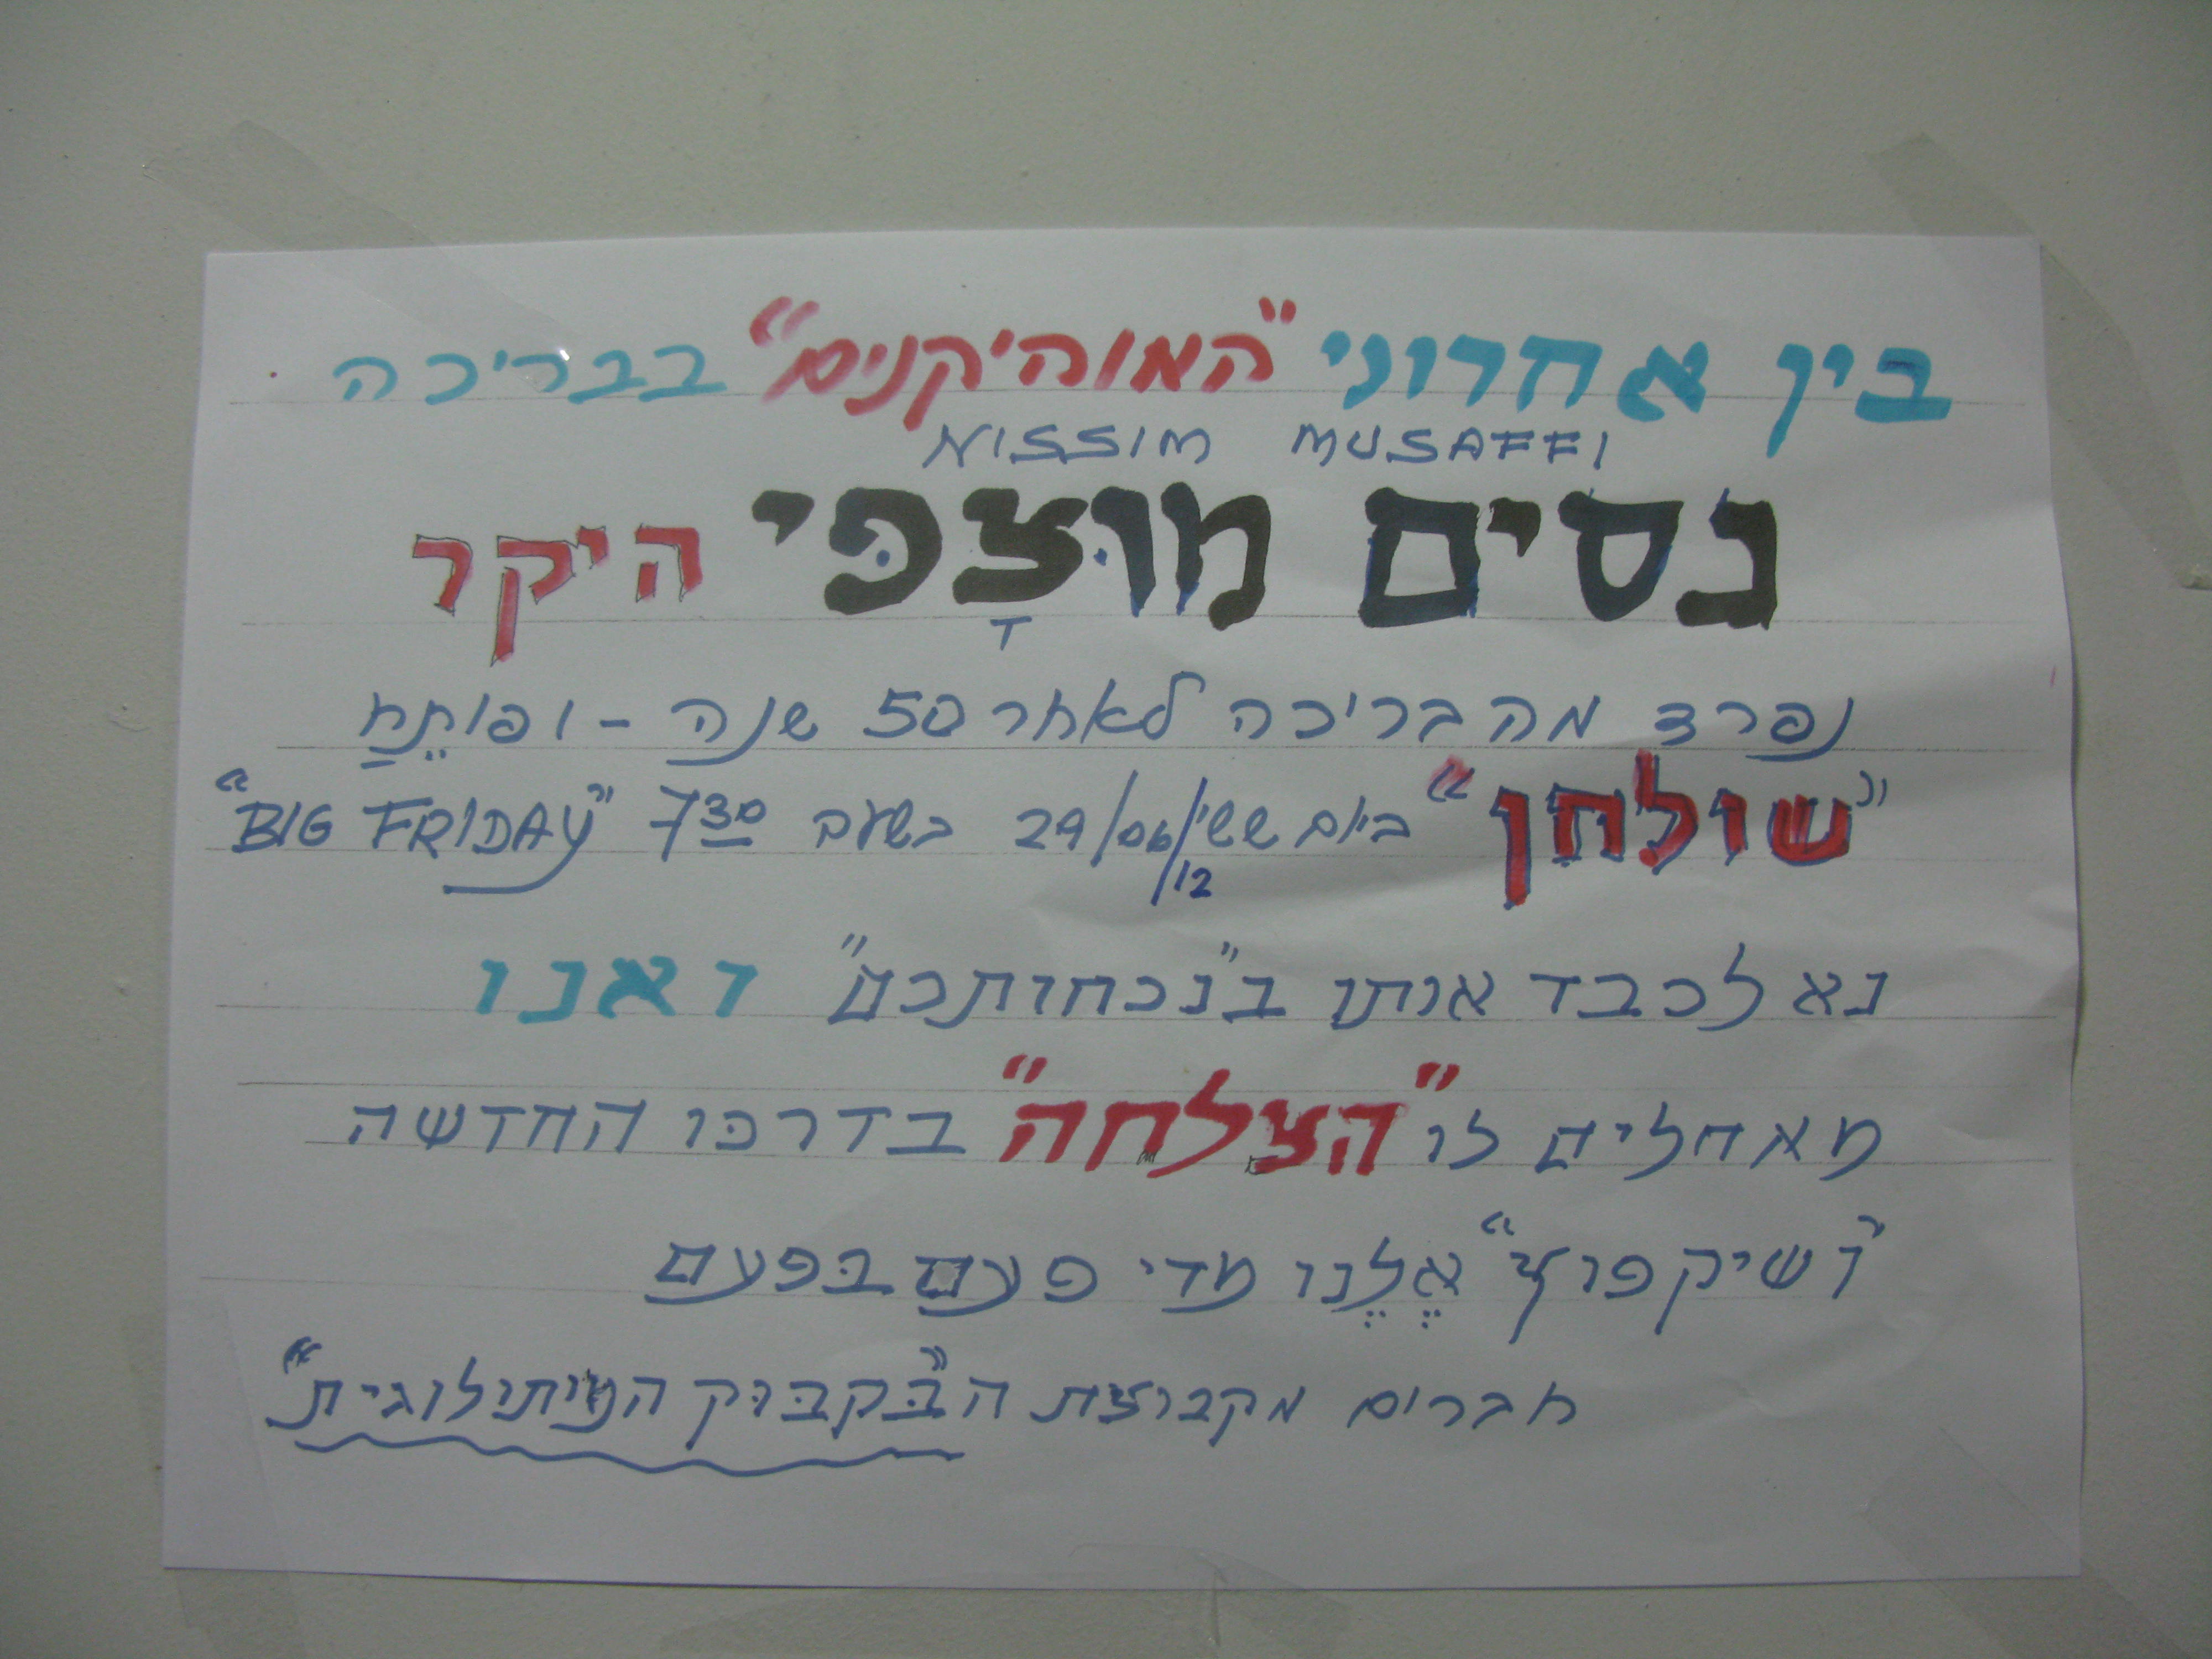 בין אחרוני "המוהיקנים" בבריכה
NISSIM MUSAFFI
נסים מוּצָפּי היקר
נפרד מהבריכה לאחר 50 שנה - ופותֵחַ
"שולחן" ביום ששי 29/06/12 בשעה 7³⁰ "BIG FRIDAY"
נא לכבד אותו ב"נכחותכם" ואנו
מאחלים לו "הצלחה" בדרכו החדשה
"ושיקפוץ" אֶלֶנו מדי פעם בפעם
חברים מקבוצת ה"בּקבּוּק המיתילוגית"